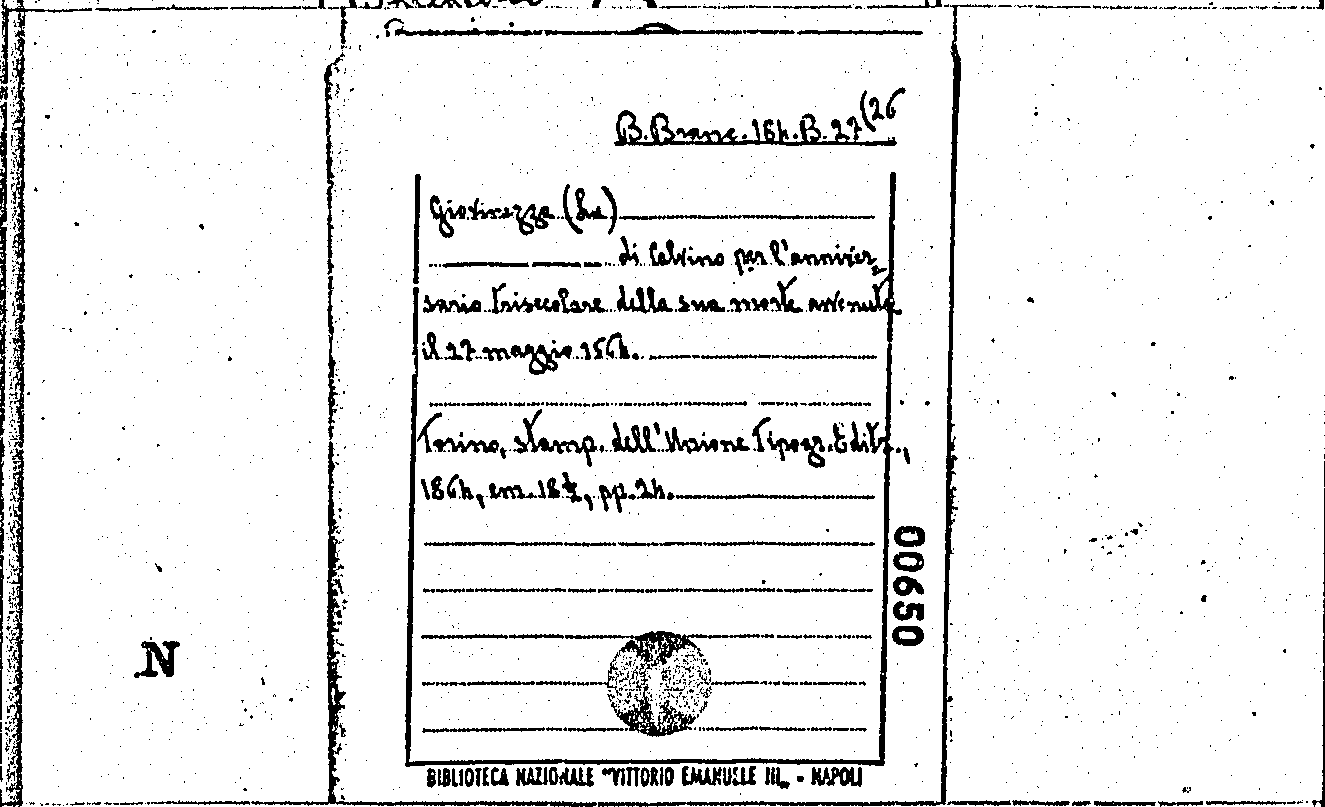 B. Branc. 164. B. 27(26
Giovinezza (La)
di Calvino per l'anniver-
sario trisecolare della sua morte avvenuta
il 27 maggio 1564.
Torino, stamp. dell'Unione Tipogr. Editr.,
1864, cm. 18½, pp. 24.
00650
N
BIBLIOTECA NAZIONALE "VITTORIO EMANUELE III„ - NAPOLI